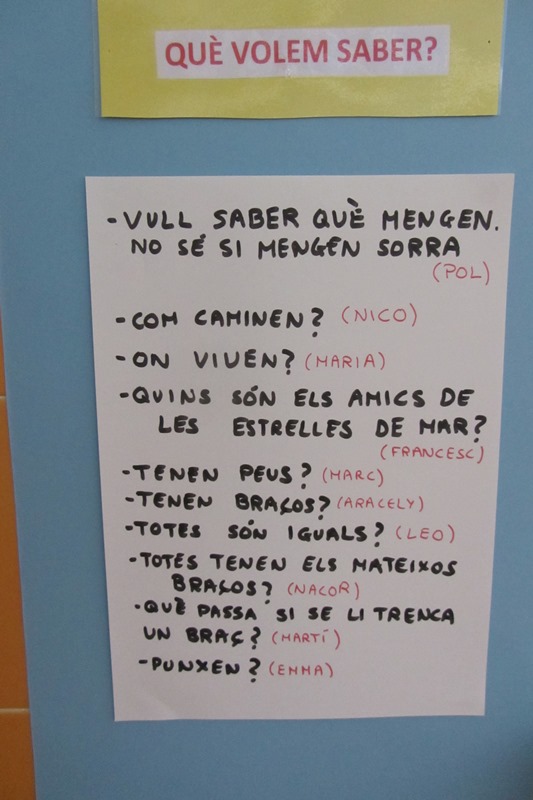 QUÈ VOLEM SABER?
-VULL SABER QUÈ MENGEN.
NO SÉ SI MENGEN SORRA
(POL)
-COM CAMINEN? (NICO)
-ON VIUEN? (MARIA)
-QUINS SÓN ELS AMICS DE
LES ESTRELLES DE MAR?
(FRANCESC)
-TENEN PEUS? (MARC)
-TENEN BRAÇOS? (ARACELY)
-TOTES SÓN IGUALS? (LEO)
-TOTES TENEN ELS MATEIXOS
BRAÇOS? (NACOR)
-QUÈ PASSA SI SE LI TRENCA
UN BRAÇ? (MARTÍ)
-PUNXEN? (EMMA)